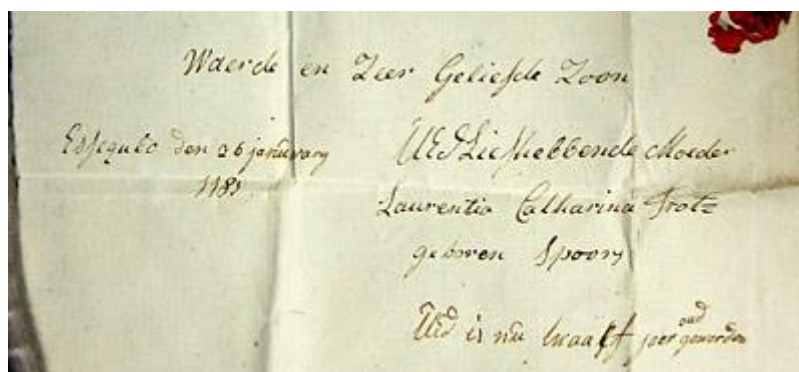 Waerde en Zeer Geliefde Zoon
Essequebo den 26 januwary
1781
UEd Liefhebbende Moeder
Laurentia Catharina Trotz
geboren Spoors
UEd is nu twaalf jaer oud geworden